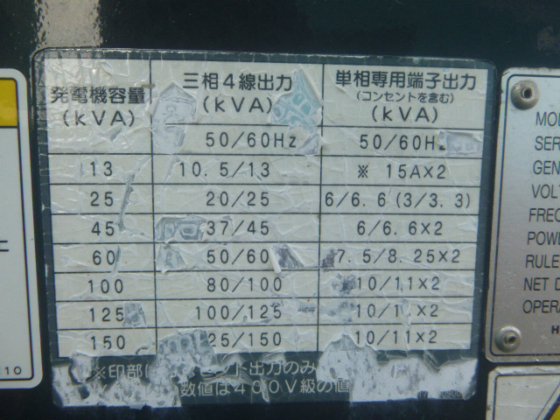 発電機容量
(kVA)
三相4線出力
(kVA)
単相専用端子出力
(コンセントを含む)
(kVA)
50/60Hz
50/60Hz
13 10.5/13 ※ 15A×2
25 20/25 6/6.6(3/3.3)
45 37/45 6/6.6×2
60 50/60 7.5/8.25×2
100 80/100 10/11×2
125 100/125 10/11×2
150 25/150 10/11×2
※印部は ット出力のみ
数値は400V級の値
MO
SER
GEN
VOL
FREQ
POW
RULE
NET D
OPERA
H
10